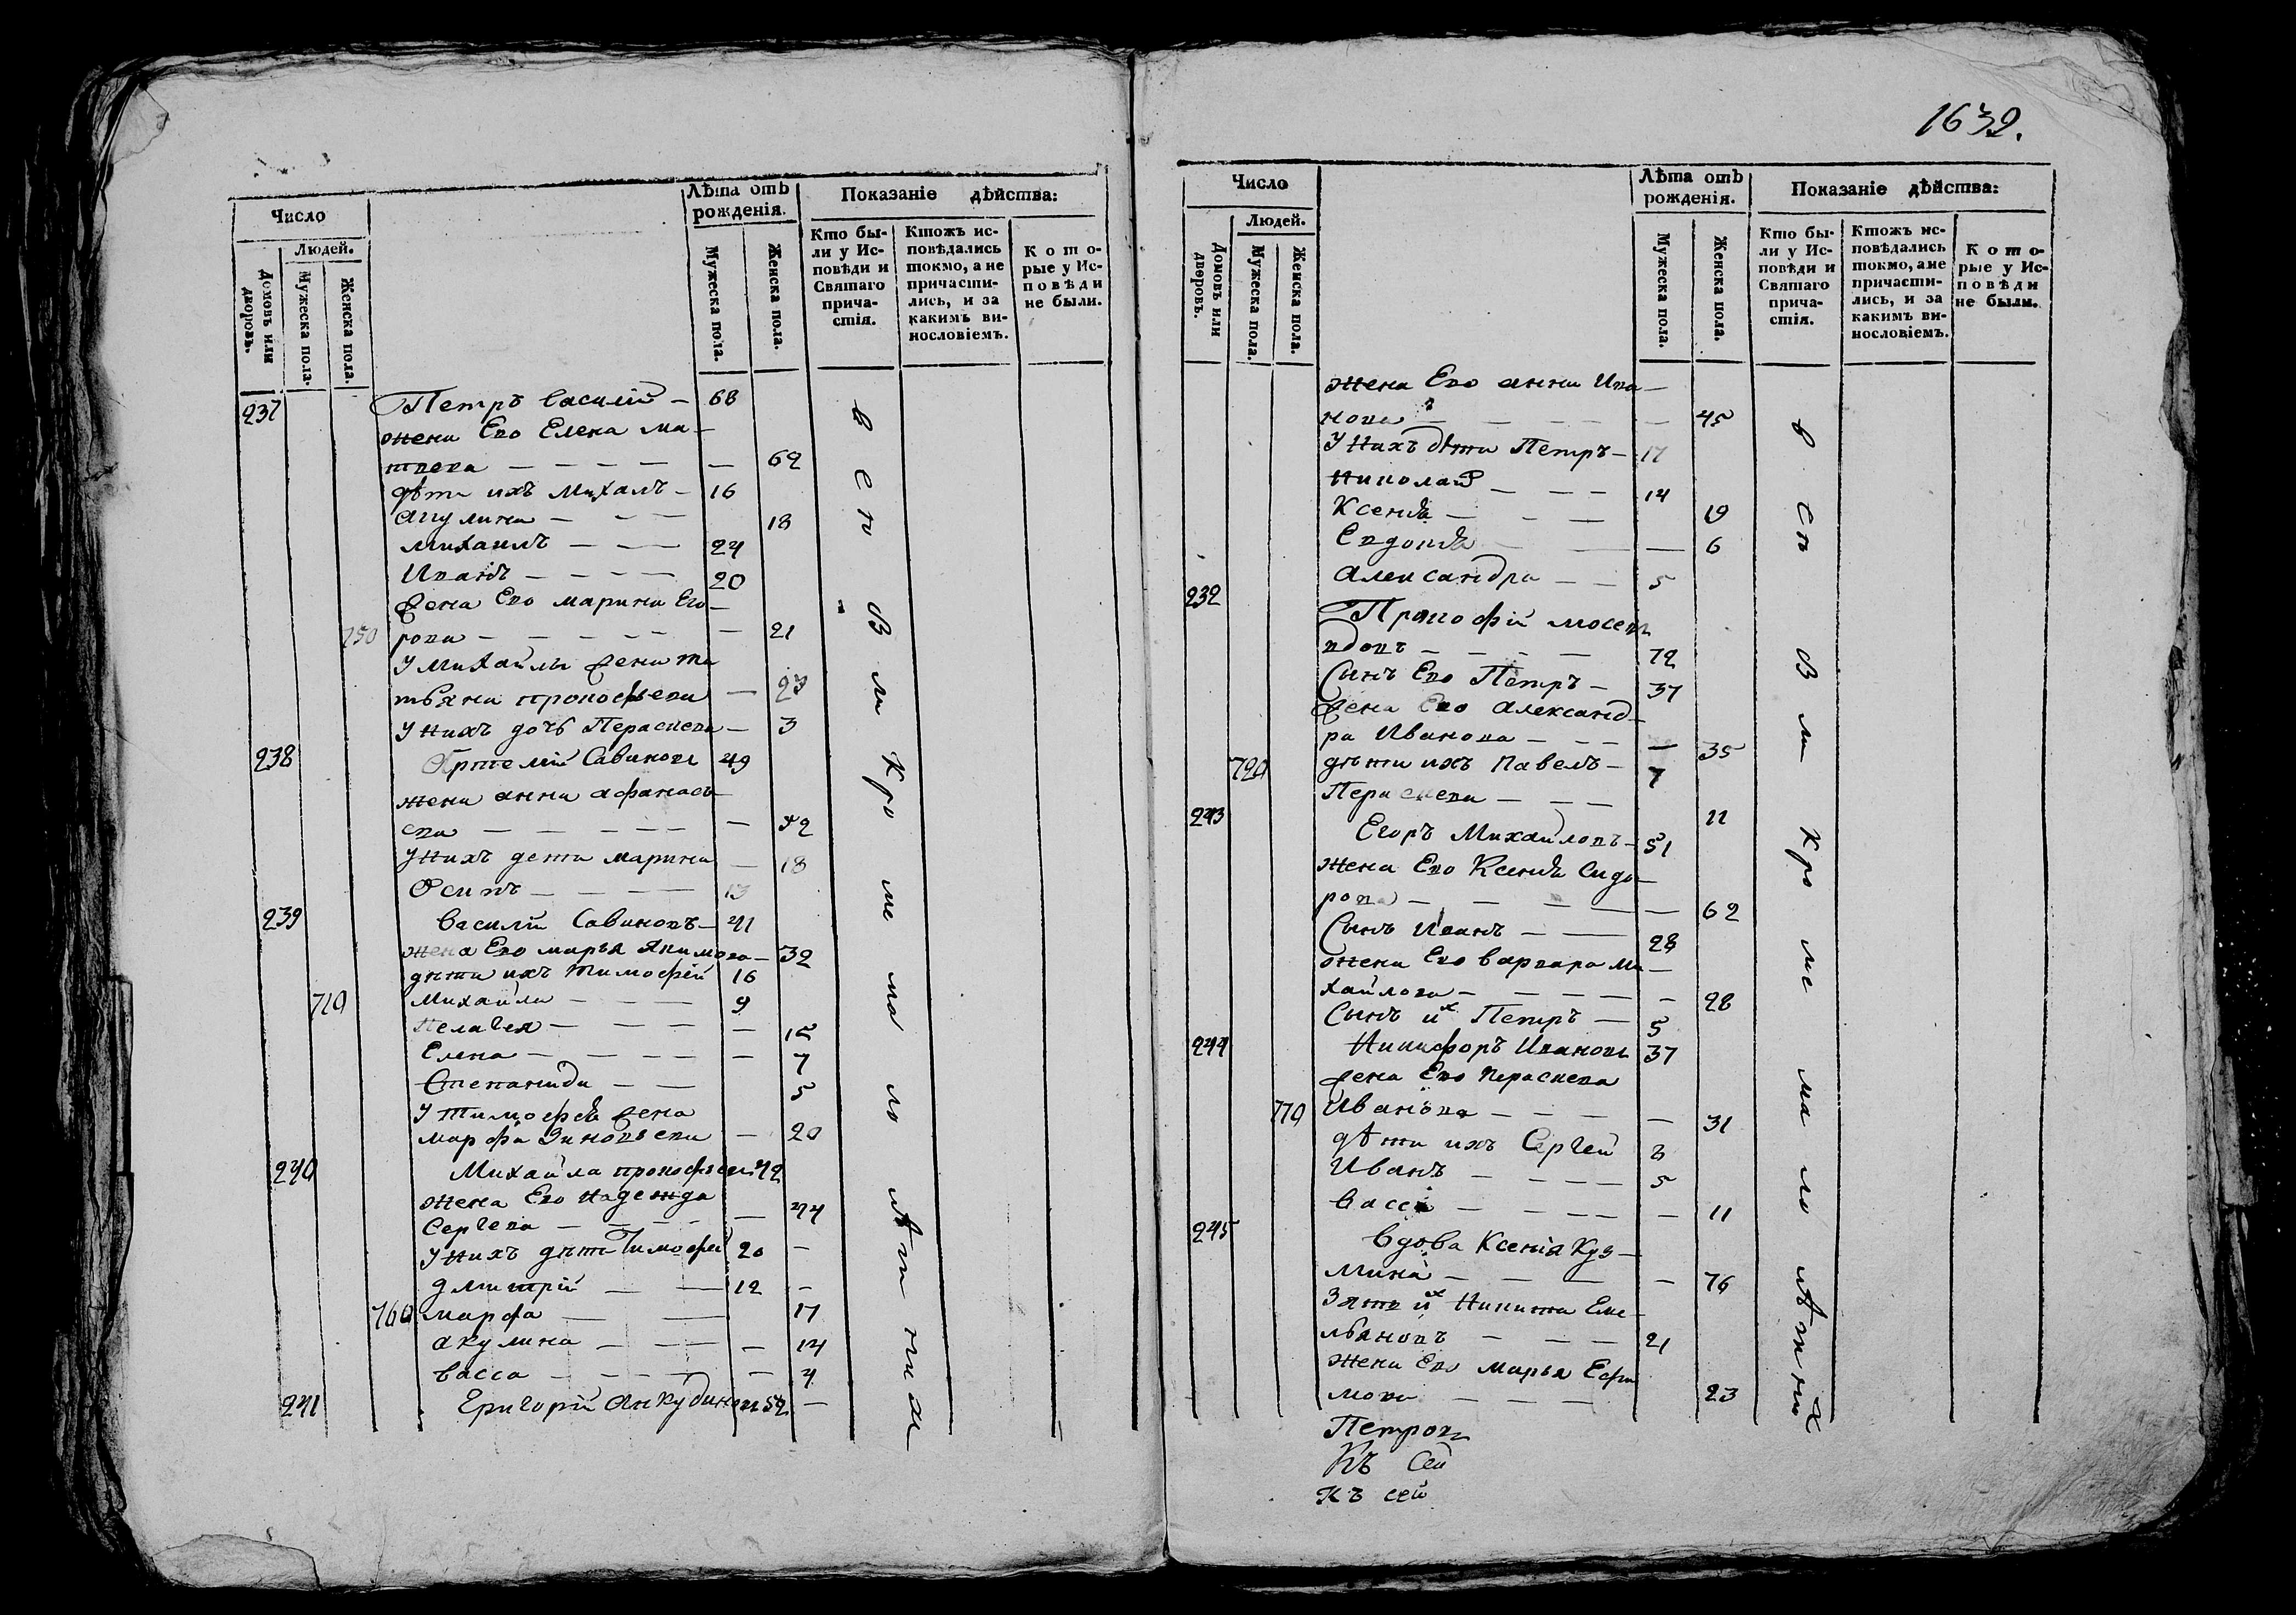 Число
Лѣта отъ рожденія.
Показаніе дѣйства:
Людей.
Домовъ или дворовъ.
Мужеска пола.
Женска пола.
Мужеска пола.
Женска пола.
Кто бы-
ли у Ис-
повѣди и
Святаго
прича-
стія.
Ктожъ ис-
повѣдались
токмо, а не
причасти-
лись, и за
какимъ ви-
нословіемъ.
Кото-
рые у Ис-
повѣди
не были.
237 Петръ Василій — 68
жена Его Елена Ма-
твева — — — — — 62
дѣти ихъ Михалъ — 16
Акулина — — — 18
Михаилъ — — — 24
Иванъ — — — — 20
жена Его Марина Его-
750 рова — — — — — — 21
У Михайлы жена Та
тьяна Прокофьева — 23
У нихъ дочь Пераскева — 3
238 Артемій Савиновъ 49
жена Анна Афанась-
ева — — — — — — 52
У нихъ дети Марина — 18
Осипъ — — — — 13
239 Василій Савиновъ — 41
жена Его Марья Якимова — 32
дѣти ихъ Тимофей 16
710 Михайла — — — 9
Пелагея — — — — 15
Елена — — — — — 7
Степанида — — 5
У Тимофея жена
Марфа Зиновьева — 20
240 Михайла Прокофьевъ 42
жена Его Надежда
Сергева — — — — 44
У нихъ дѣти Тимофей 20 —
Дмитрій — — 12 —
760 Марфа — — 17
Акулина — — — — 14
Васса — — — — — 4
241 Григорій Анкудиновъ 52 —
всѣ
Вли
Кроме
мало
лѣтних
1632.
Число
Лѣта отъ рожденія.
Показаніе дѣйства:
Людей.
Домовъ или дворовъ.
Мужеска пола.
Женска пола.
Мужеска пола.
Женска пола.
Кто бы-
ли у Ис-
повѣди и
Святаго
прича-
стія.
Ктожъ ис-
повѣдались
токмо, а не
причасти-
лись, и за
какимъ ви-
нословіемъ.
Кото-
рые у Ис-
повѣди
не были.
жена Его Анна Ива —
нова — — — — — 45
У нихъ дѣти Петръ — 17
Николай — — — 14
Ксенія — — — 19
Евдокія — — — 6
Александра — — 5
232 Прокофій Мосеи
вдовъ — — — — 72
Сынъ Его Петръ — 37
жена Его Александ-
ра Иванова — — — — 35
720 дѣти ихъ Павелъ — 7
Пераскева — — — 11
243 Егоръ Михайловъ — 51
жена Его Ксенія Сидо —
рова — — — — — 62
Сынъ Иванъ — — 28
жена Его Варвара Ми —
хайлова — — — — — 28
Сынъ их Петръ — 5
244 Никифоръ Ивановъ 37
жена Его Пераскева
770 Иванова — — — — 31
дѣти ихъ Сергей 8
Иванъ — — — — 5
Васса — — — — — 11
245 Вдова Ксенія Куз —
мина — — — — — 76
Зять их Никита Еме-
льяновъ — — — 21
жена Его Марья Ефи
мова — — — 23
Петровъ
Къ Сей
Къ сей
всѣ
Вли
Кроме
мало
лѣтних